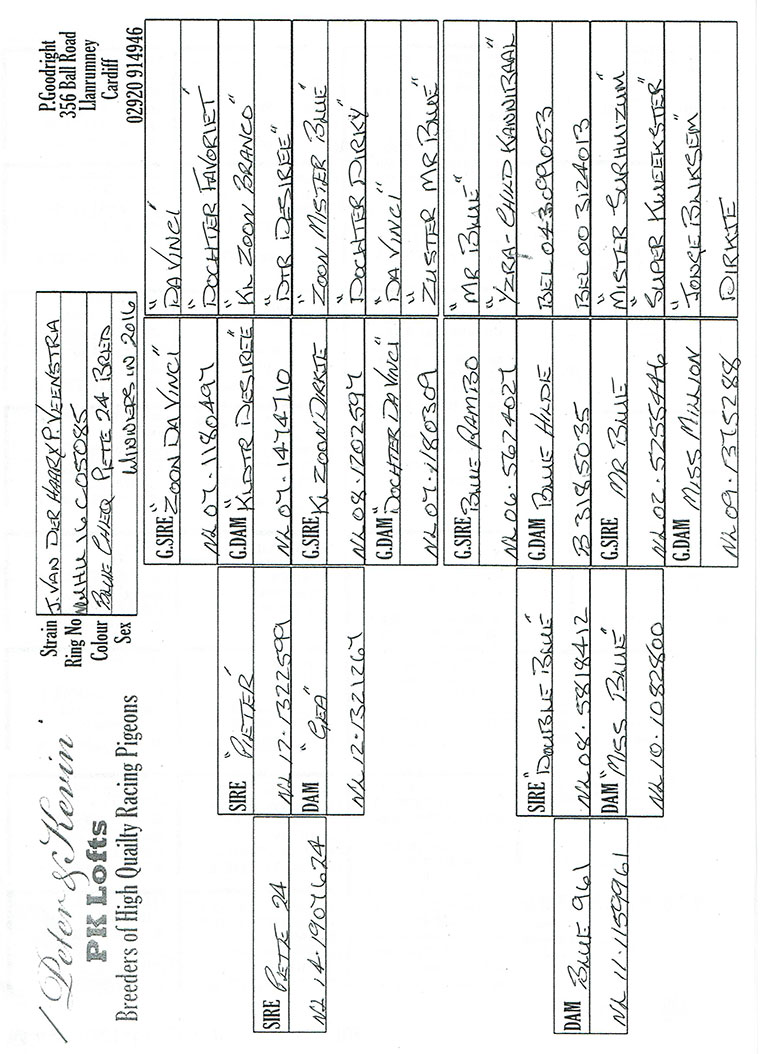 Peter & Kevin
PK Lofts
Breeders of High Quailty Racing Pigeons
Strain J. VAN DER HAAR X P. VEENSTRA
Ring No 16 C05085
Colour BLUE CHEQ PIETE 24 BRED
Sex WINNERS IN 2016
P.Goodright
356 Ball Road
Llanrumney
Cardiff
02920 914946
SIRE PIETE 24
NL 14·1907624
DAM BLUE 961
NL 11·1159961
SIRE "PIETER"
NL 12·1322599
DAM "GEA"
NL 12·1321267
SIRE "DOUBLE BLUE"
NL 08·5818412
DAM "MISS BLUE"
NL 10·1082800
G.SIRE "ZOON DA VINCI"
NL 07·1180497
G.DAM "KL DTR DESIREE"
NL 07·1474710
G.SIRE KL ZOON DIRKJE
NL 08·1702597
G.DAM "DOCHTER DA VINCI"
NL 07·1180309
G.SIRE BLUE RAMBO
NL 06·5674027
G.DAM BLUE HILDE
B 3185035
G.SIRE MR BLUE
NL 02·5255446
G.DAM MISS MILLION
NL 09·1375288
"DA VINCI"
"DOCHTER FAVORIET"
"KL ZOON BRANCO"
"DTR DESIREE"
"ZOON MISTER BLUE"
"DOCHTER DIRKY"
"DA VINCI"
"ZUSTER MR BLUE"
"MR BLUE"
"YZRA-CHILD KANNIBAAL"
BEL 043099053
BEL 00 3124013
"MISTER SURHUIZUM"
"SUPER KWEEKSTER"
"JONGE BLIKSEM"
DIRKJE